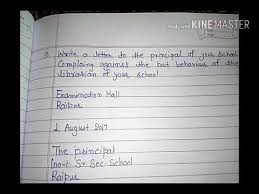 Made with KINEMASTER
Q Write a letter to the principal of your school
Complaing against the bat behaviour of the
librarian of your school
Examination Hall
Raipur
1 August 2017
The Principal
Govt Sr Sec School
Raipur